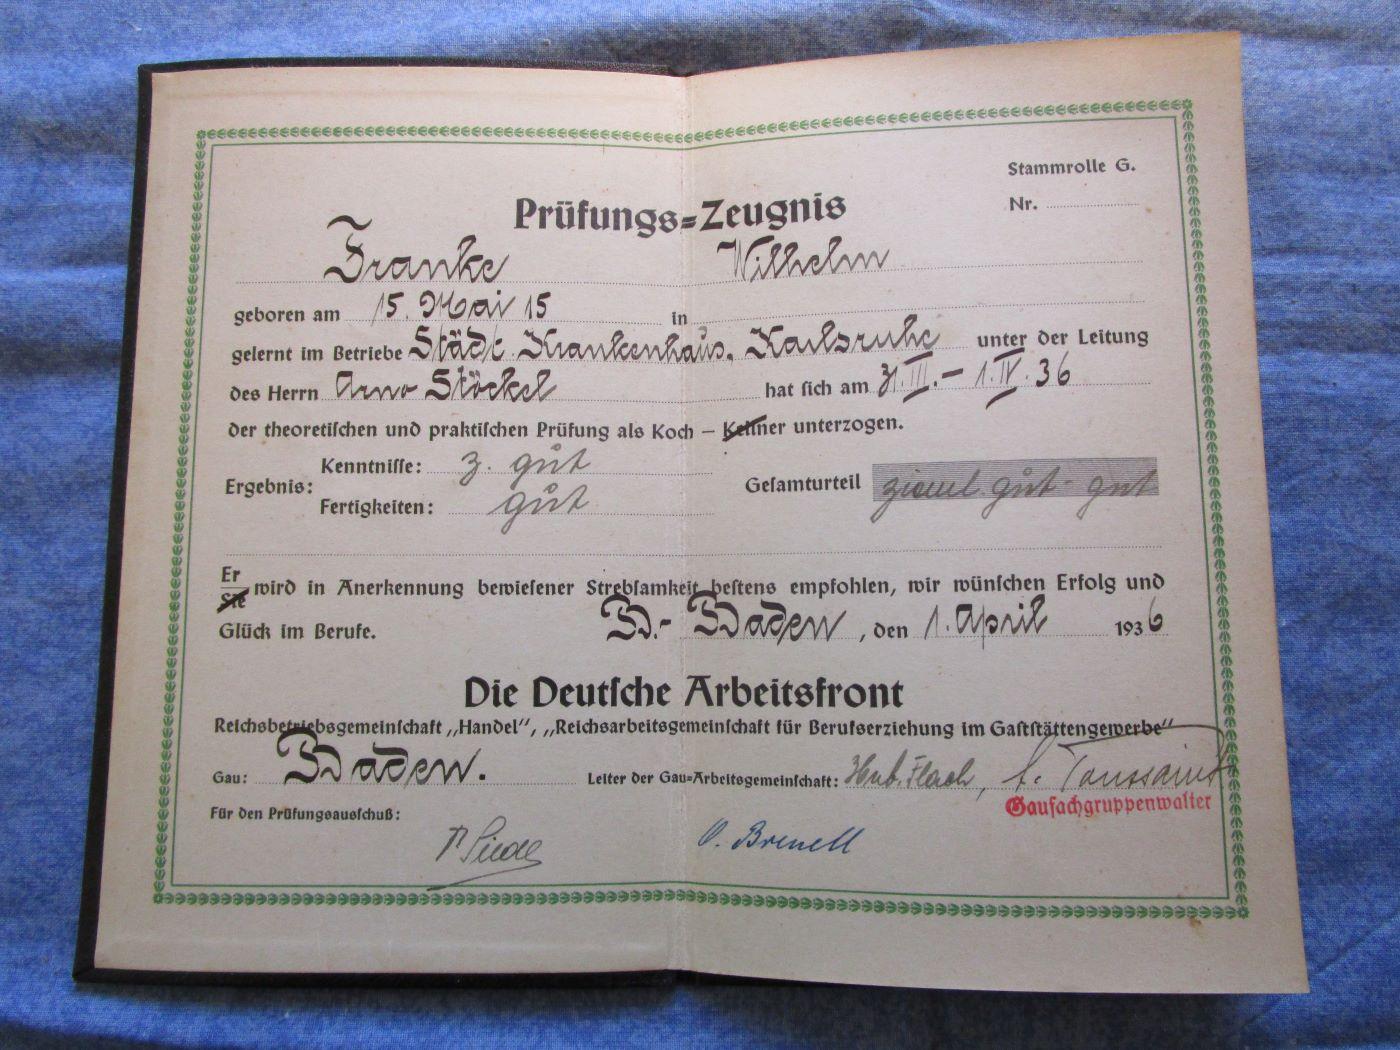 Stammrolle G.
Nr.
Prüfungs=Zeugnis
Franke Wilhelm
geboren am 15. Mai 15 in
gelernt im Betriebe Städt. Krankenhaus, Karlsruhe unter der Leitung
des Herrn Arno Stöckel hat sich am 31.III.– 1.IV.36
der theoretischen und praktischen Prüfung als Koch – Kellner unterzogen.
Kenntnisse: z. gut
Ergebnis:
Gesamturteil zieml. gut - gut
Fertigkeiten: gut
Er
Sie
wird in Anerkennung bewiesener Strebsamkeit bestens empfohlen, wir wünschen Erfolg und
Glück im Berufe. B.- Baden, den 1. April 1936
Die Deutsche Arbeitsfront
Reichsbetriebsgemeinschaft „Handel“, „Reichsarbeitsgemeinschaft für Berufserziehung im Gaststättengewerbe“
Gau: Baden. Leiter der Gau=Arbeitsgemeinschaft: Hub. Flach, Toussaint
Gaufachgruppenwalter
Für den Prüfungsausschuß: